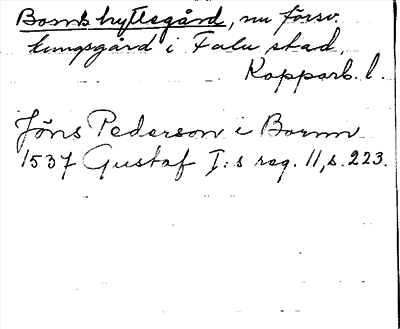 Bomshyttegård, nu försv.
kungsgård i Falu stad,
Kopparb. l.
Jöns Pederson i Bormn
1537 Gustaf I:s reg. 11, s. 223.